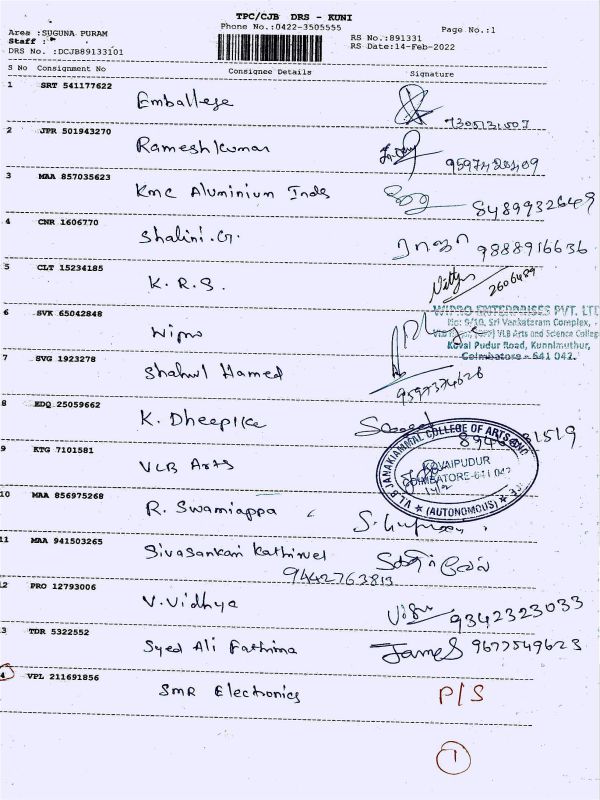 TPC/CJB DRS - KUNI
Phone No.:0422-3505555
Page No.:1
Area :SUGUNA PURAM
RS No.:891331
Staff :
RS Date:14-Feb-2022
DRS No. :DCJB89133101
S No Consignment No Consignee Details Signature
1 SRT 541177622
Emballege
2 JPR 501943270
Ramesh Kumar
3 MAA 857035623
Kmc Aluminium Inds 8489932649
4 CNR 1606770
Shalini.G. 9888916636
5 CLT 15234185
K.R.S. 2606489
6 SVK 65042848
Wipro
WIPRO ENTERPRISES PVT. LTD
No: 9/10, Sri Venkateram Complex,
VLB Arts and Science College
Kovai Pudur Road, Kunnimuthur,
Coimbatore - 641 042.
7 SVG 1923278
Shahul Hamed 9597374628
8 EDQ 25059662
K. Dheepike
9 KTG 7101581
VLB Arts
VLB JANAKIAMMAL COLLEGE OF ARTS
KOVAIPUDUR
COIMBATORE-641 042
(AUTONOMOUS)
10 MAA 856975268
R. Swamiappa
11 MAA 941503265
Sivasankari Kathirvel
9442763813
12 PRO 12793006
V.Vidhya 9342323033
13 TDR 5322552
Syed Ali Fathima James 9677549623
4 VPL 211691856
SMR Electronics P/S
1